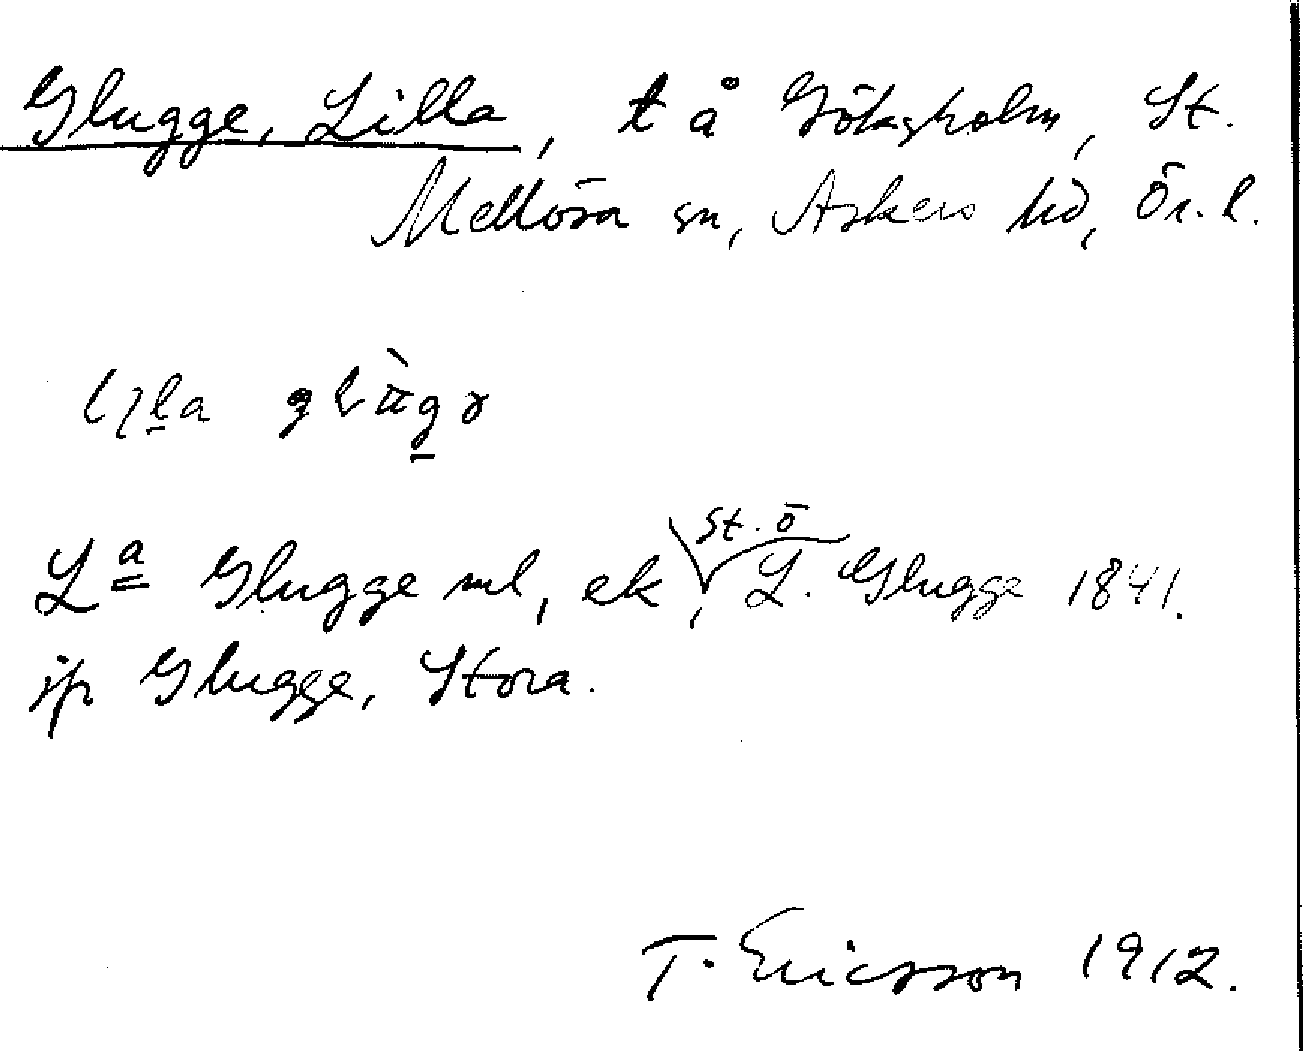 Glugge, Lilla, t å Göksholm, St.
Mellösa sn, Askers hd, Ör. l.
St. ö
L<sup>a</sup> Glugge ml, ek, L. Glugge 1841.
jfr Glugge, Stora.
T. Ericsson 1912.